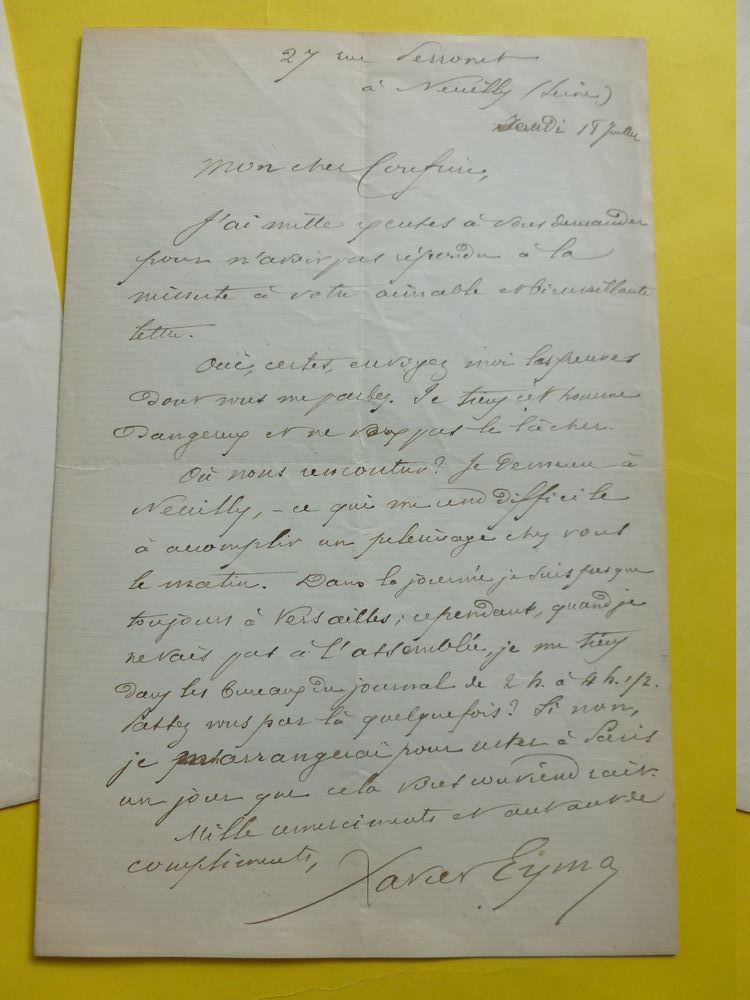 27 rue Perronet
à Neuilly (Seine)
Jeudi 18 Juillet
Mon cher Confrère,
J'ai mille excuses à vous demander
pour n'avoir pas répondu à la
minute à votre aimable et bienveillante
lettre.
Oui, certes, envoyez moi les preuves
dont vous me parlez. Je tiens cet homme
dangereux et ne veux pas le lâcher.
Où nous rencontrer? Je demeure à
Neuilly, - ce qui me rend difficile
à accomplir un pélerinage chez vous
le matin. Dans la journée je suis presque
toujours à Versailles; cependant, quand je
ne vais pas à l'assemblée, je me tiens
dans les bureaux du journal de 2 h. à 4 h. 1/2.
Passez vous par là quelquefois? Si non,
je m'arrangerai pour rester à Paris
un jour que cela vous conviendrait.
Mille remerciments et autant de
compliments,
Xavier Eyma